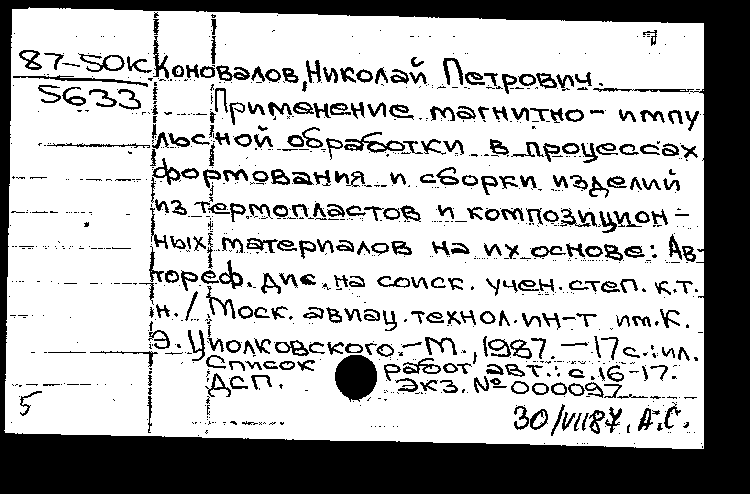 7
87-50К Коновалов, Николай Петрович.
5633 Применение магнитно-импу
льсной обработки в процессах
формования и сборки изделий
из термопластов и композицион-
ных материалов на их основе: Ав-
тореф. дис. на соиск. учен. степ. к.т.
н. / Моск. авиац. технол. ин-т им. К.
Э. Циолковского.-М., 1987.-17с.: ил.
Список работ авт.: с.16-17.
ДСП. Экз. № 000097
5 30/VII87. А.С.